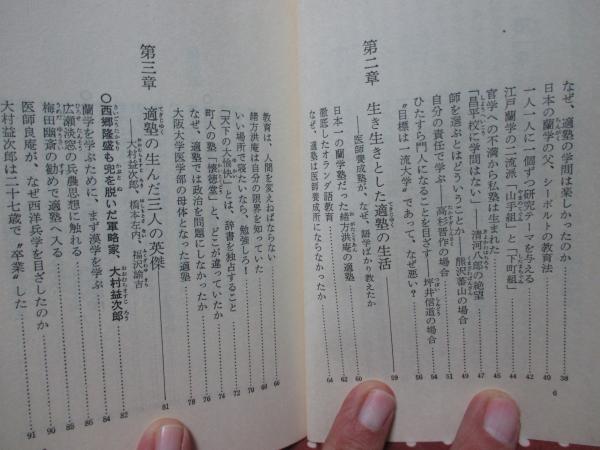 なぜ、適塾の学問は楽しかったのか 38
日本の蘭学の父、シーボルトの教育法 40
一人一人に一個ずつ研究テーマを与える 42
江戸蘭学の二流派「山手組」と「下町組」 44
官学への不満から私塾は生まれた 45
「昌平校に学問はない」──清河八郎の絶望 47
師を選ぶとはどういうことか──熊沢蕃山の場合 49
自分の責任で学ぶ──高杉晋作の場合 51
ひたすら門人になることを目ざす──坪井信道の場合 54
〝目標は一流大学〟であって、なぜ悪い? 56
第二章 生き生きとした適塾の生活 59
──医師養成塾が、なぜ、語学ばかり教えたか
日本一の蘭学塾だった緒方洪庵の適塾 60
徹底したオランダ語教育 62
なぜ、適塾は医師養成所にならなかったか 64
6
教育は、人間を変えねばならない 66
緒方洪庵は自分の限界を知っていた 68
いい場所で寝たいなら、勉強しろ! 70
「天下の大愉快」とは、辞書を独占すること 72
町人の塾「懐徳堂」と、どこが違っていたか 74
なぜ、適塾では政治を問題にしなかったか 76
大阪大学医学部の母体となった適塾 78
第三章 適塾の生んだ三人の英傑 81
──大村益次郎、橋本左内、福沢諭吉
○西郷隆盛も兜を脱いだ軍略家、大村益次郎 82
蘭学を学ぶために、まず漢学を学ぶ 84
広瀬淡窓の兵農思想に触れる 88
梅田幽斎の勧めで適塾へ入る 90
医師良庵が、なぜ西洋兵学を目ざしたのか 91
大村益次郎は二十七歳で〝卒業〟した